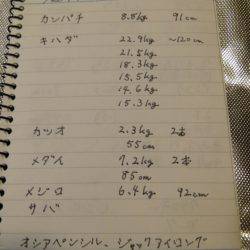 カンパチ 8.8kg 91cm
キハダ 22.9kg ~120cm
21.5kg
18.3kg
15.5kg
14.6kg
15.3kg
カツオ 2.3kg 2本
55cm
メダイ 7.2kg 2本
85cm
メジロ 6.4kg 92cm
サバ
オシアペンシル、ジャックアイロング